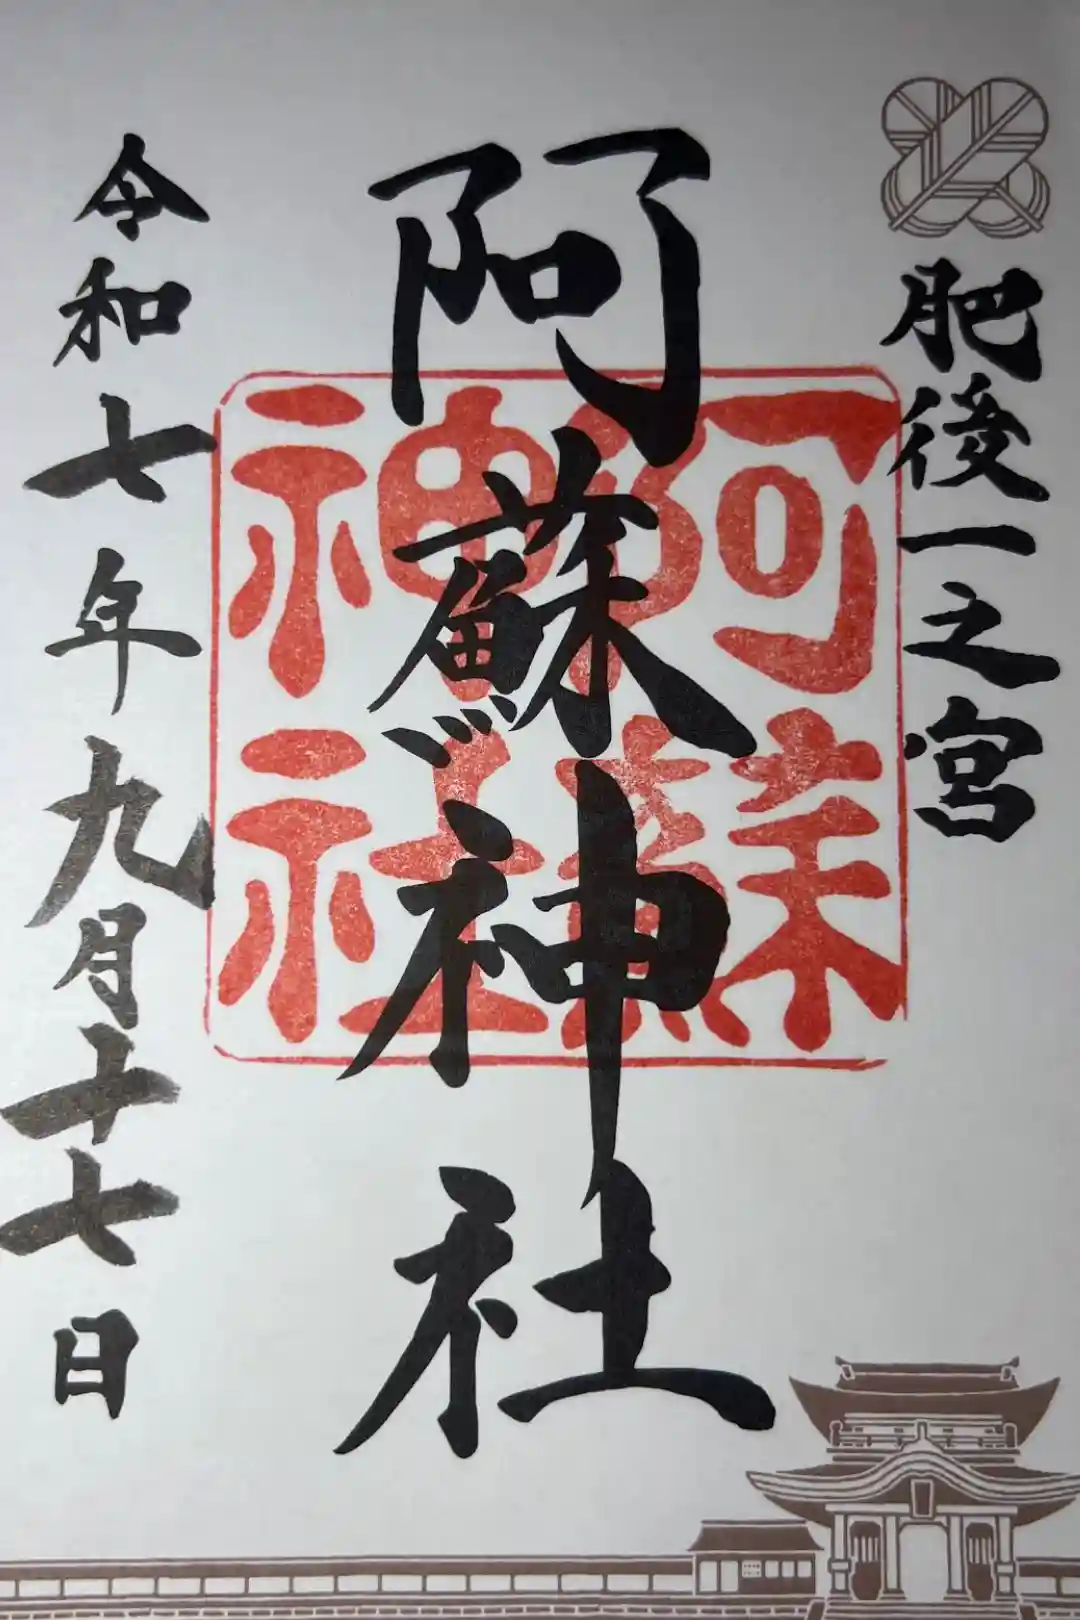 肥後一之宮
阿蘇神社
阿蘇神社
令和七年九月十七日